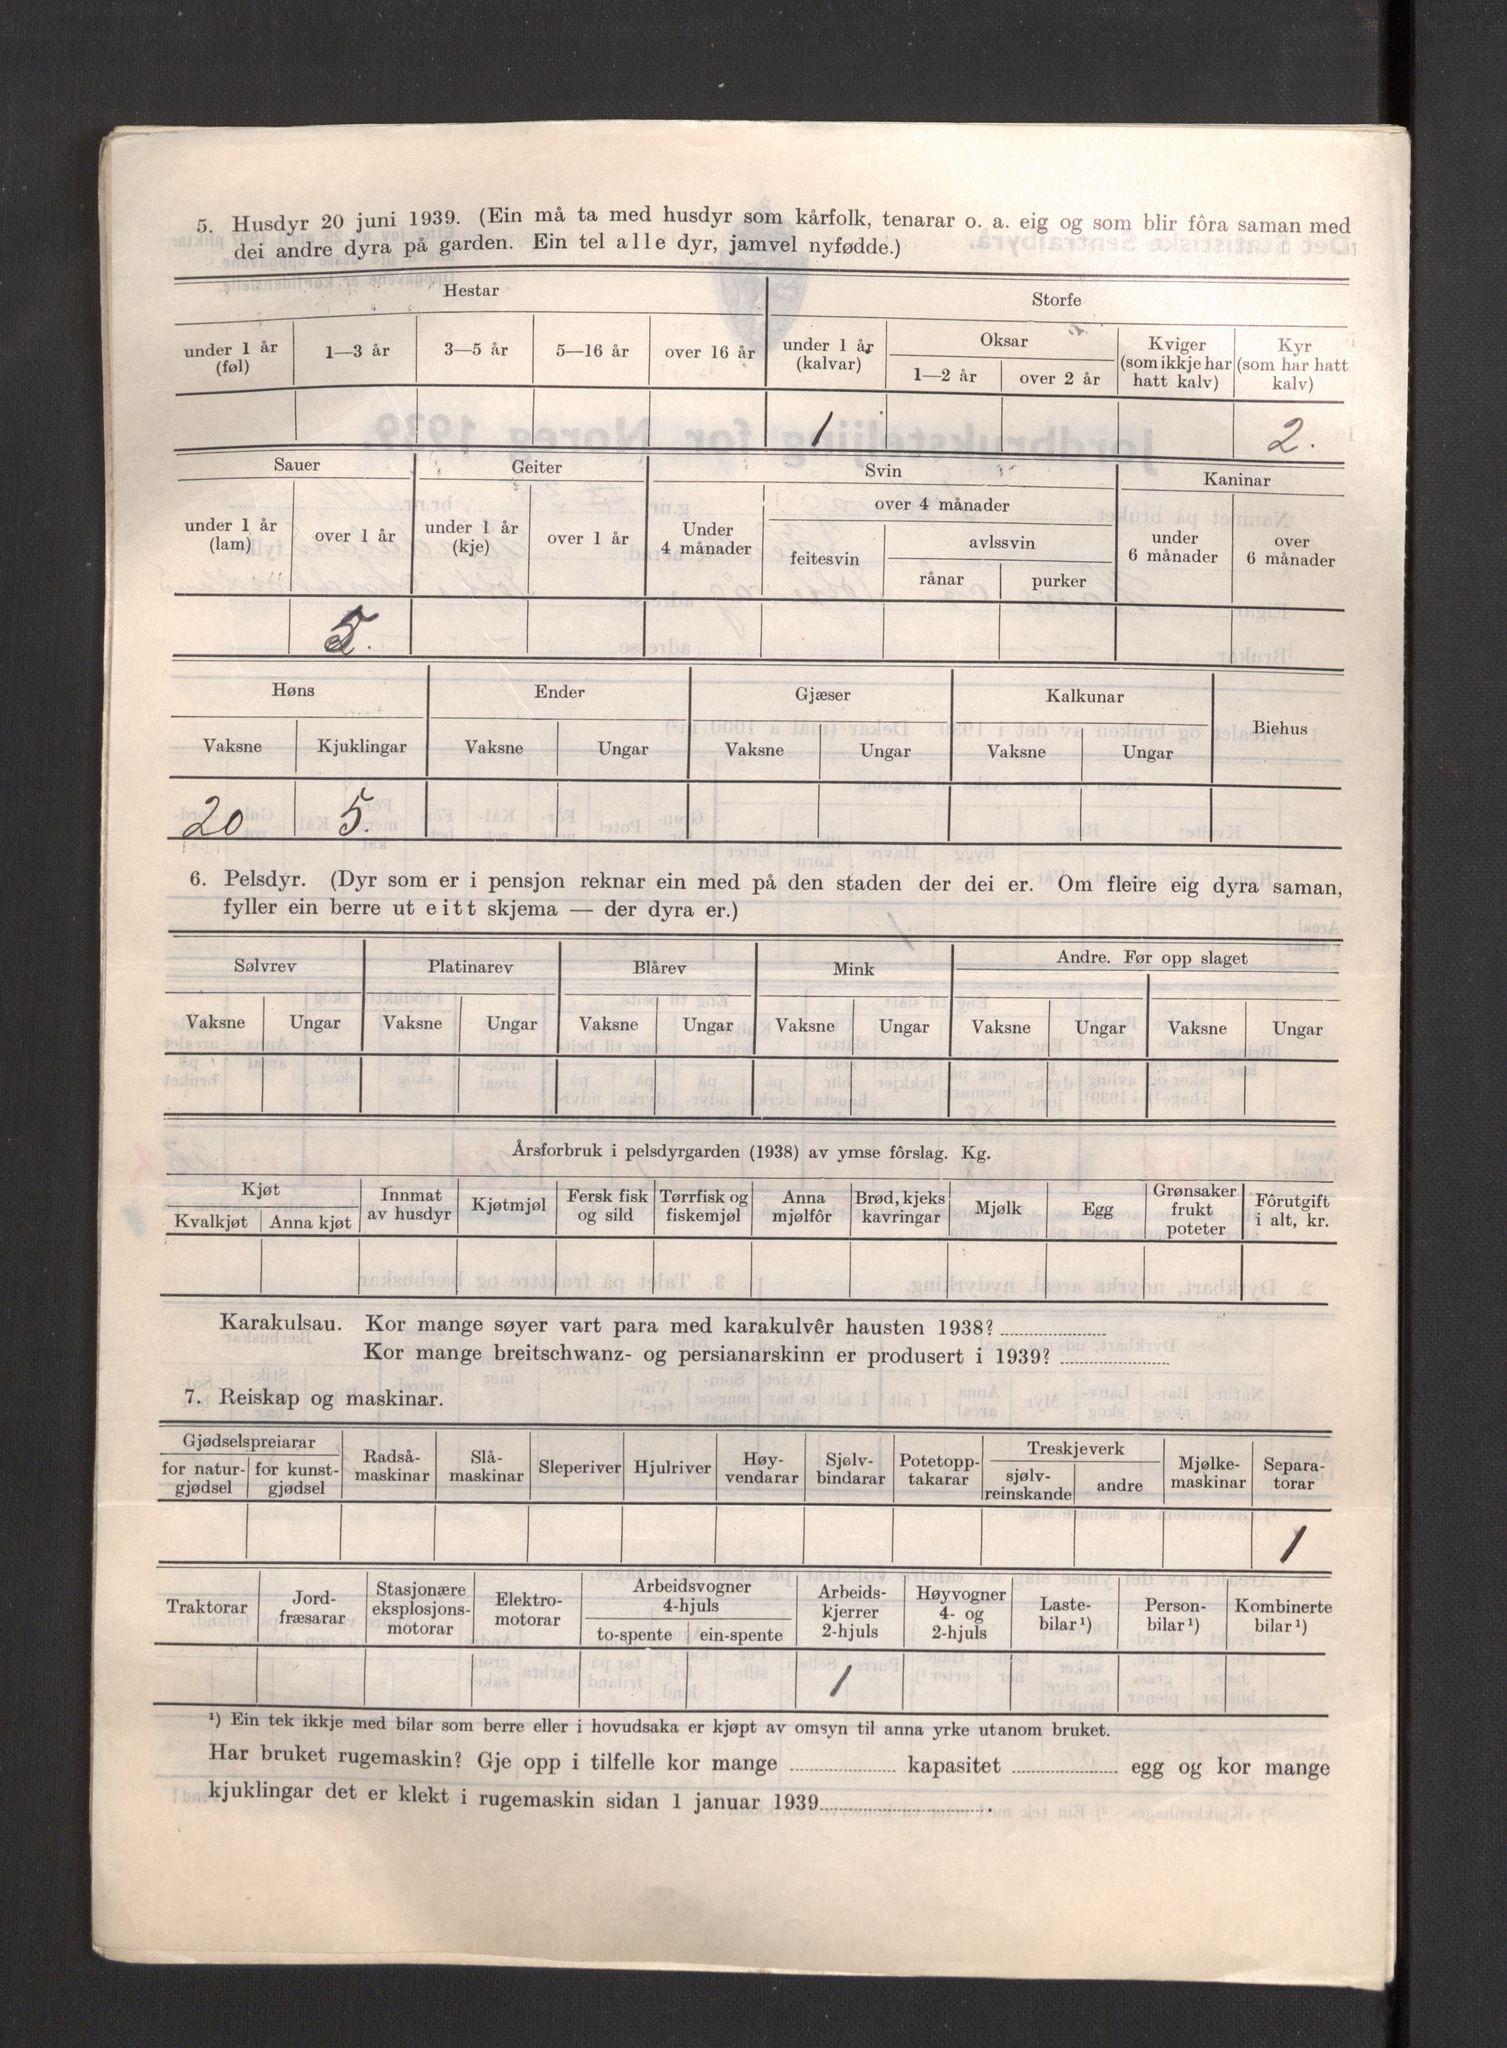 5. Husdyr 20 juni 1939. (Ein må ta med husdyr som kårfolk, tenarar o. a. eig og som blir fôra saman med
dei andre dyra på garden. Ein tel alle dyr, jamvel nyfødde.)
Hestar Storfe
under 1 år (føl) 1—3 år 3—5 år 5—16 år over 16 år under 1 år (kalvar) Oksar 1—2 år over 2 år Kviger (som ikkje har hatt kalv) Kyr (som har hatt kalv)
1 2.
Sauer Geiter Svin Kaninar
under 1 år (lam) over 1 år under 1 år (kje) over 1 år Under 4 månader over 4 månader feitesvin avlssvin rånar purker under 6 månader over 6 månader
5.
Høns Ender Gjæser Kalkunar Biehus
Vaksne Kjuklingar Vaksne Ungar Vaksne Ungar Vaksne Ungar
20 5.
6. Pelsdyr. (Dyr som er i pensjon reknar ein med på den staden der dei er. Om fleire eig dyra saman,
fyller ein berre ut eitt skjema — der dyra er.)
Sølvrev Platinarev Blårev Mink Andre. Før opp slaget
Vaksne Ungar Vaksne Ungar Vaksne Ungar Vaksne Ungar Vaksne Ungar Vaksne Ungar
Årsforbruk i pelsdyrgarden (1938) av ymse fôrslag. Kg.
Kjøt Kvalkjøt Anna kjøt Innmat av husdyr Kjøtmjøl Fersk fisk og sild Tørrfisk og fiskemjøl Anna mjølfôr Brød, kjeks kavringar Mjølk Egg Grønsaker frukt poteter Fôrutgift i alt, kr.
Karakulsau. Kor mange søyer vart para med karakulvêr hausten 1938?
Kor mange breitschwanz- og persianarskinn er produsert i 1939?
7. Reiskap og maskinar.
Gjødselspreiarar for natur-gjødsel for kunst-gjødsel Radså-maskinar Slå-maskinar Sleperiver Hjulriver Høy-vendarar Sjølv-bindarar Potetopp-takarar Treskjeverk sjølv-reinskande andre Mjølke-maskinar Separa-torar
1
Traktorar Jord-fræsarar Stasjonære eksplosjons-motorar Elektro-motorar Arbeidsvogner 4-hjuls to-spente ein-spente Arbeids-kjerrer 2-hjuls Høyvogner 4- og 2-hjuls Laste-bilar ¹) Person-bilar ¹) Kombinerte bilar ¹)
1
¹) Ein tek ikkje med bilar som berre eller i hovudsaka er kjøpt av omsyn til anna yrke utanom bruket.
Har bruket rugemaskin? Gje opp i tilfelle kor mange kapasitet egg og kor mange
kjuklingar det er klekt i rugemaskin sidan 1 januar 1939 .